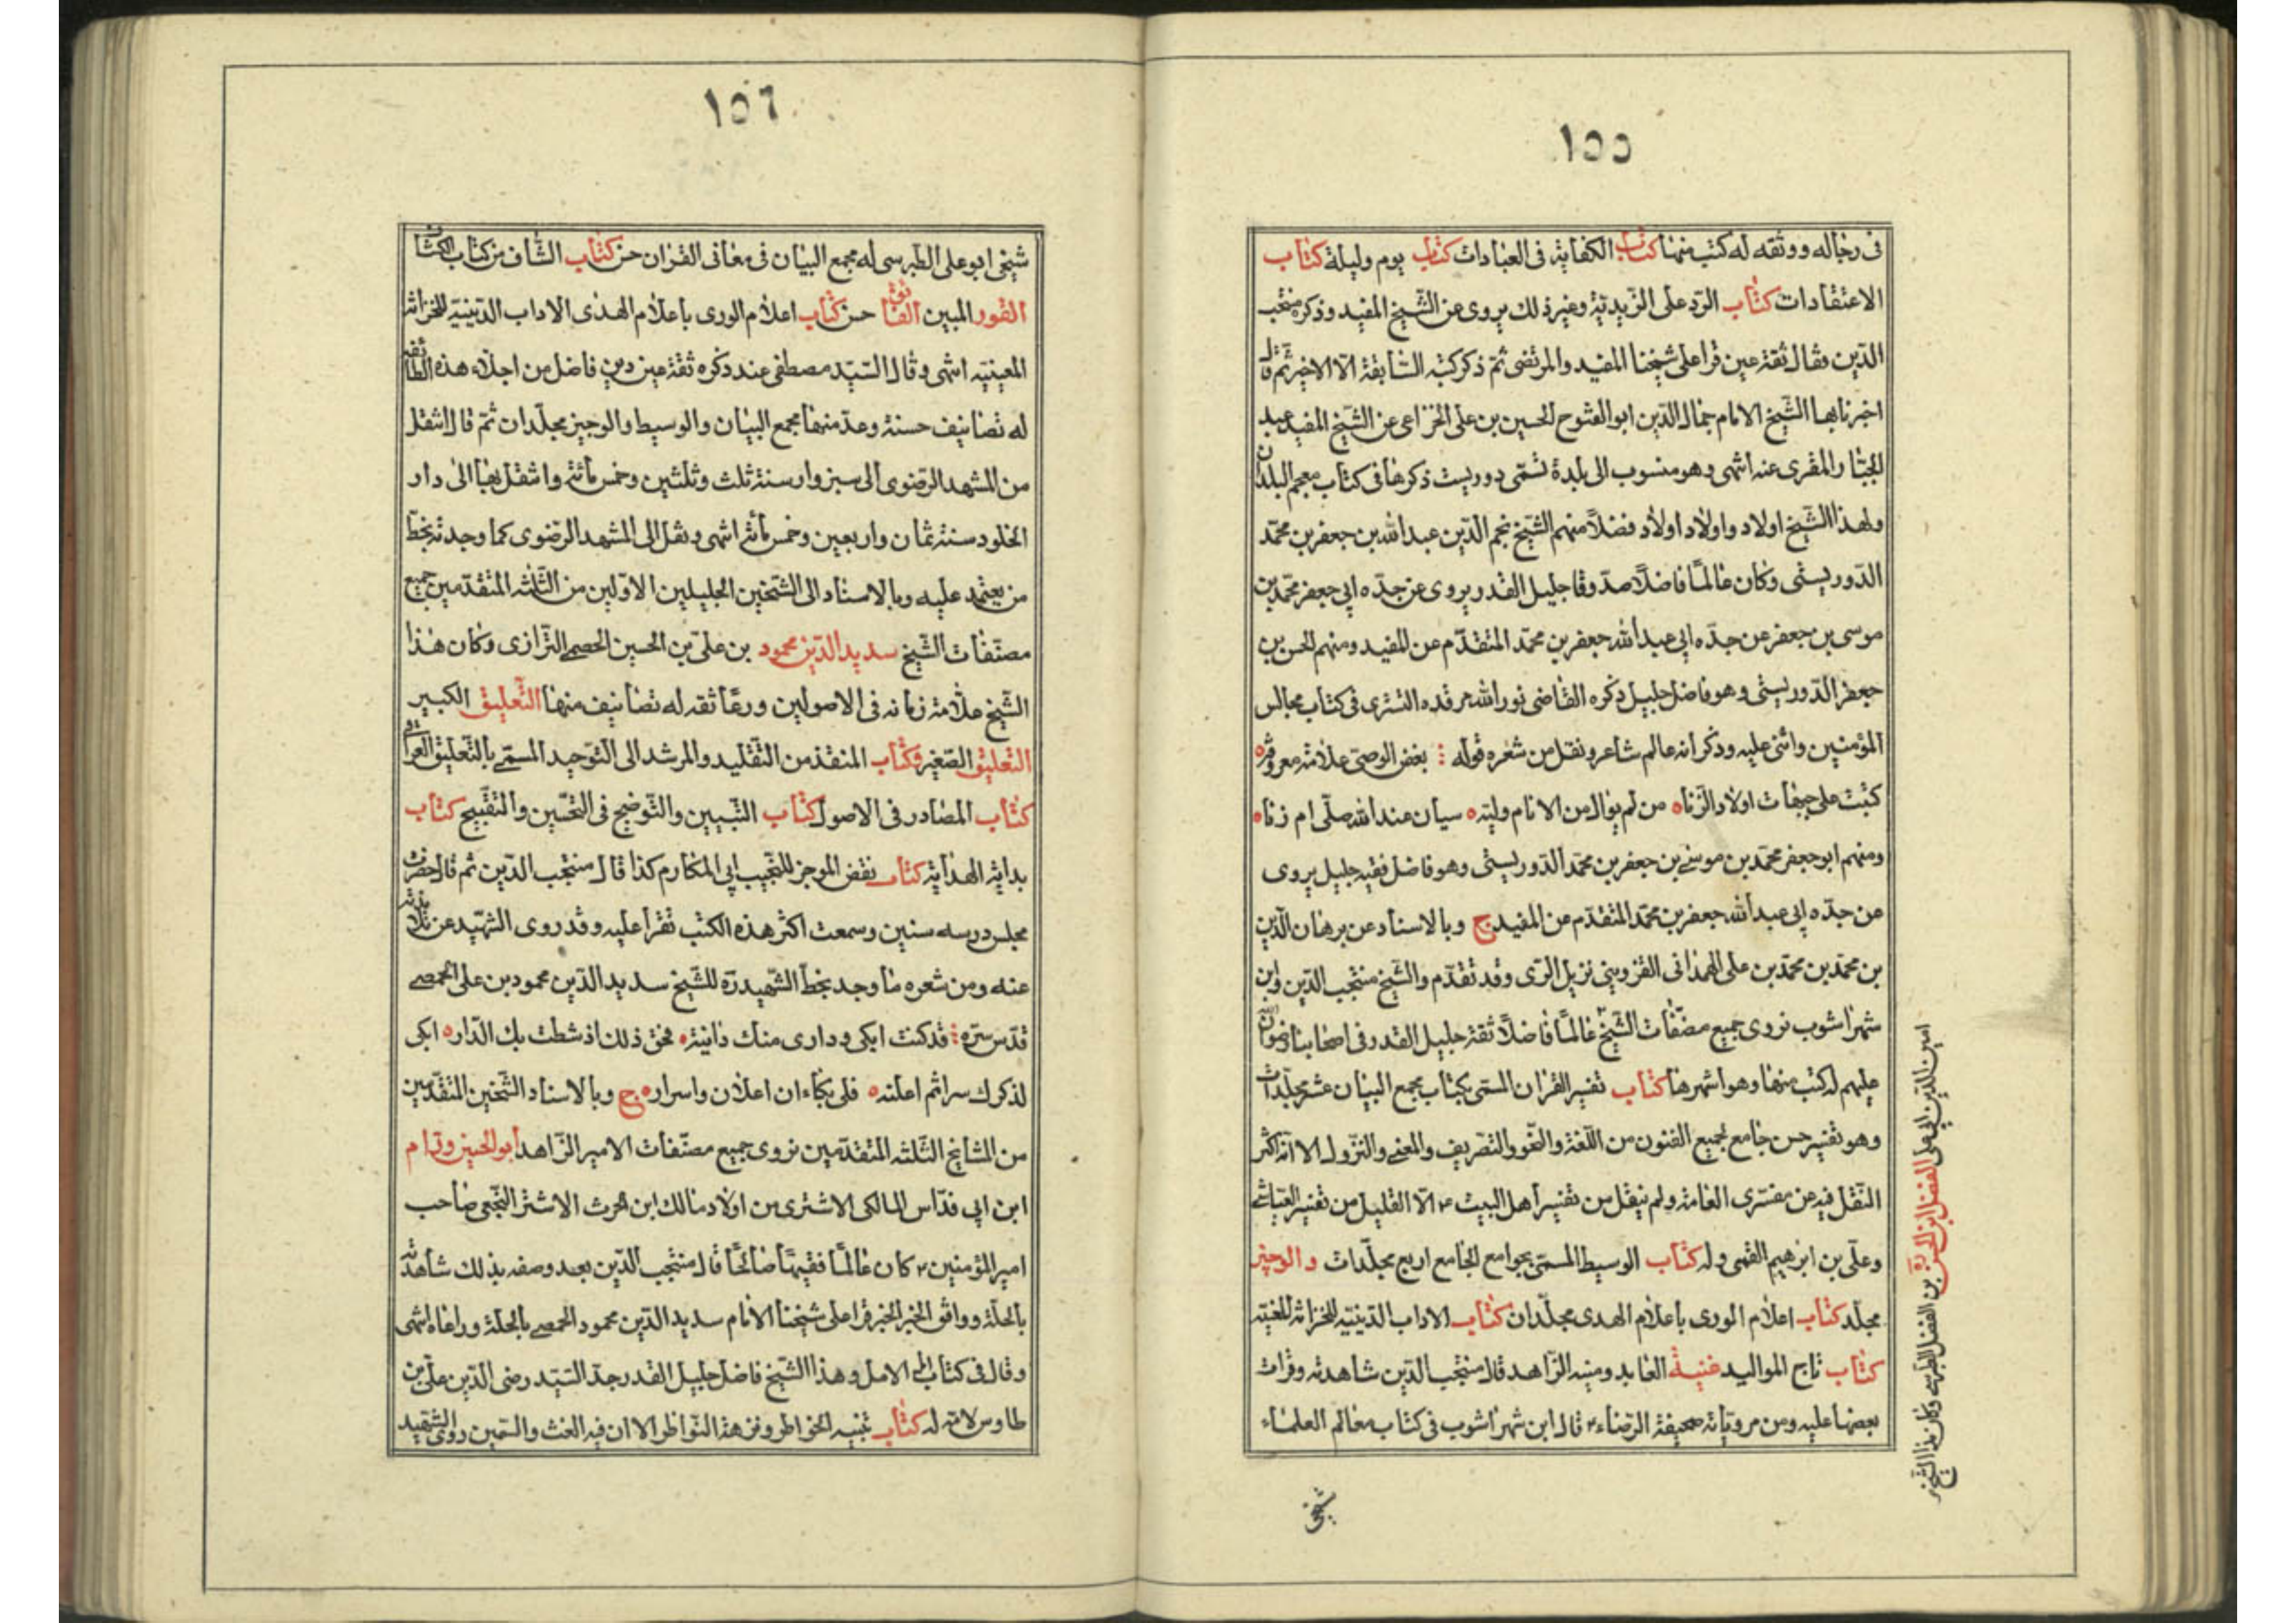 ١٥٥
فى رجاله ووثقه له كتب منها كتاب الكفاية فى العبادات كتاب يوم وليلة كتاب
الاعتقادات كتاب الرد على الزيدية وغير ذلك يروى عن الشيخ المفيد وذكره منتجب
الدين وقال ثقة عين قرا على شيخنا المفيد والمرتضى ثم ذكر كتبه السابقة الا الاخير ثم قال
اخبرنا بها الشيخ الامام جمال الدين ابو الفتوح الحسين بن على الخزاعى عن الشيخ المفيد عبد
الجبار المقرى عنه انتهى وهو منسوب الى بلدة تسمى دوريست ذكرها فى كتاب معجم البلدان
ولهذا الشيخ اولاد واولاد اولاد فضلاً منهم الشيخ نجم الدين عبد الله بن جعفر بن محمد
الدوريستى وكان عالماً فاضلاً صدوقا جليل القدر يروى عن جده ابى جعفر محمد بن
موسى بن جعفر عن جده ابى عبد الله جعفر بن محمد المتقدم عن المفيد ومنهم الحسن بن
جعفر الدوريستى وهو فاضل جليل ذكره القاضى نور الله مرقده التسترى فى كتاب مجالس
المؤمنين واثنى عليه وذكر انه عالم شاعر ونقل من شعره قوله بغض الوصى علامة معروفه
كتبت على جبهات اولاد الزناه من لم يوال من الانام وليه سيان عند الله صلى ام زناه
ومنهم ابو جعفر محمد بن موسى بن جعفر بن محمد الدوريستى وهو فاضل فقيه جليل يروى
عن جده ابى عبد الله جعفر بن محمد المتقدم عن المفيد ح وبالاسناد عن برهان الدين
بن محمد بن محمد بن على الهمدانى القزوينى نزيل الرى وقد تقدم والشيخ منتجب الدين وابن
شهراشوب نروى جميع مصنفات الشيخ عالماً فاضلاً ثقة جليل القدر فى اصحابنا رضوان الله
عليهم له كتب منها وهو اشهرها كتاب تفسير القران المسمى بكتاب مجمع البيان عشر مجلدات
وهو تفسير حسن جامع لجميع الفنون من اللغة والنحو والتصريف والمعنى والنزول الا انه اكثر
النقل فيه عن مفسرى العامة ولم ينقل من تفسير اهل البيت ع الا القليل من تفسير العياشى
وعلى بن ابرهيم القمى وله كتاب الوسيط المسمى بجوامع الجامع اربع مجلدات والوجيز
مجلد كتاب اعلام الورى باعلام الهدى مجلدان كتاب الاداب الدينية للخزانة المعينية
كتاب تاج المواليد غنية العابد ومنية الزاهد قال منتجب الدين شاهدته وقرات
بعضها عليه ومن مروياته صحيفة الرضا ع قال ابن شهراشوب فى كتاب معالم العلماء
شيخى
امين الدين ابى على الفضل ابن الحسن بن الفضل الطبرسى وكان هذا الشيخ
١٥٦
شيخى ابو على الطبرسى له مجمع البيان فى معانى القران حسن كتاب الشاف من كتاب الكشاف
النور المبين الفائق حسن كتاب اعلام الورى باعلام الهدى الاداب الدينية للخزانة
المعينيه انتهى وقال السيد مصطفى عند ذكره ثقة عين دين فاضل من اجلاء هذه الطائفة
له تصانيف حسنة وعد منها مجمع البيان والوسيط والوجيز مجلدان ثم قال انتقل
من المشهد الرضوى الى سبزوار سنة ثلث وثلثين وخمس مائة وانتقل بها الى دار
الخلود سنة ثمان واربعين وخمس مائة انتهى ونقل الى المشهد الرضوى كما وجدته بخط
من يعتمد عليه وبالاسناد الى الشيخين الجليلين الاولين من الثلثه المتقدمين جميع
مصنفات الشيخ سديد الدين محمود بن على بن الحسين الحمصى الرازى وكان هذا
الشيخ علامة زمانه فى الاصولين ورعاً ثقه له تصانيف منها التعليق الكبير
التعليق الصغير وكتاب المنقذ من التقليد والمرشد الى التوحيد المسمى بالتعليق العراقى
كتاب المصادر فى الاصول كتاب التبيين والتوضيح فى التحسين والتقبيح كتاب
بداية الهداية كتاب نقض الموجز للنجيب ابى المكارم كذا قال منتجب الدين ثم قال حضرت
مجلس درسه سنين وسمعت اكثر هذه الكتب تقرا عليه وقد روى الشهيد عن تلامذته
عنه ومن شعره ما وجد بخط الشهيد ره للشيخ سديد الدين محمود بن على الحمصى
قدس سره قد كنت ابكى ودارى منك دانية فحق ذلك اذ شطت بك الدار ابكى
لذكرك سرا ثم اعلنه فلى بكاءان اعلان واسرار ح وبالاسناد الشيخين المتقدمين
من المشايخ الثلثه المتقدمين نروى جميع مصنفات الامير الزاهد ابو الحسين ورام
ابن ابى فراس المالكى الاشترى من اولاد مالك ابن الحرث الاشتر النخعى صاحب
امير المؤمنين ع كان عالماً فقيهاً صالحاً قال منتجب الدين بعد وصفه بذلك شاهدته
بالحلة ووافق الخبر الخبر قرا على شيخنا الامام سديد الدين محمود الحمصى بالحلة وراعاه انتهى
وقال فى كتاب امل الامل وهذا الشيخ فاضل جليل القدر جد السيد رضى الدين على بن
طاوس لامه له كتاب تنبيه الخواطر ونزهة النواظر الا ان فيه الغث والسمين روى الشهيد